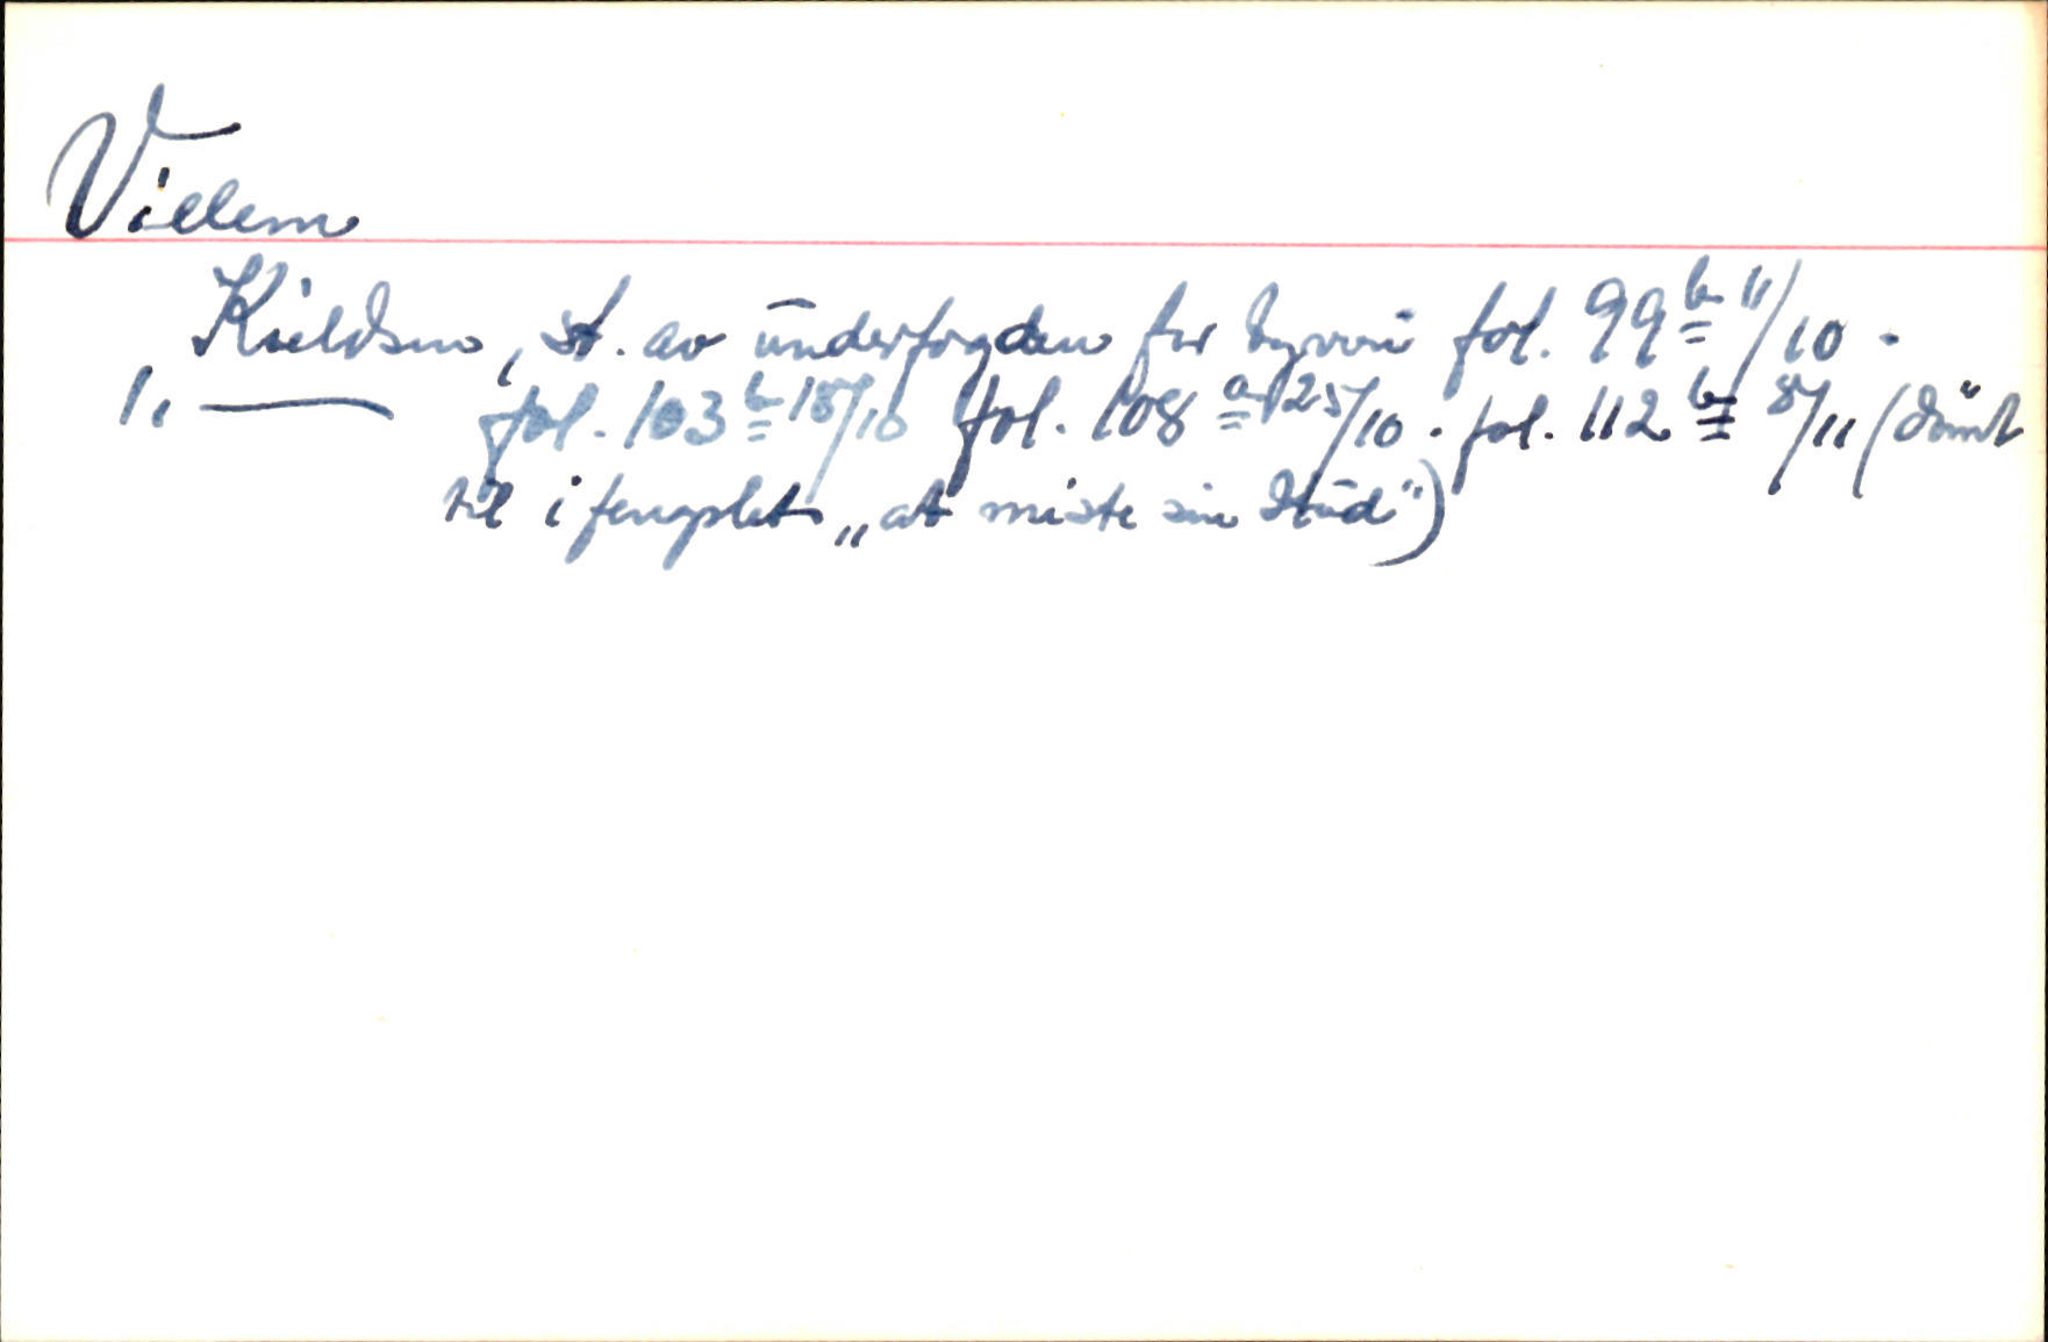 Villem
Kieldsen, st. av underfogden for tyveri fol. 99 b 11/10.
1, — fol. 103 b 18/10 fol. 108 a 25/10. fol. 112 b 8/11 (dömt
til i fengslet „at miste sin Hud")